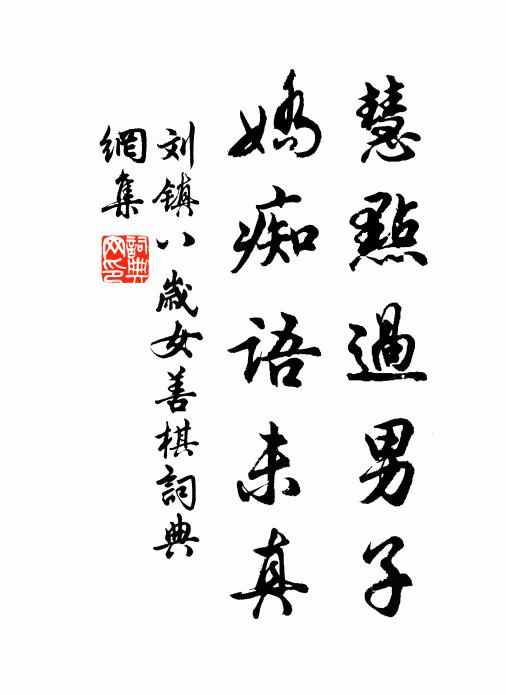 慧點過男子
嬌痴語未真
刘镇八歲女善棋詞典
網集
詞典
网印